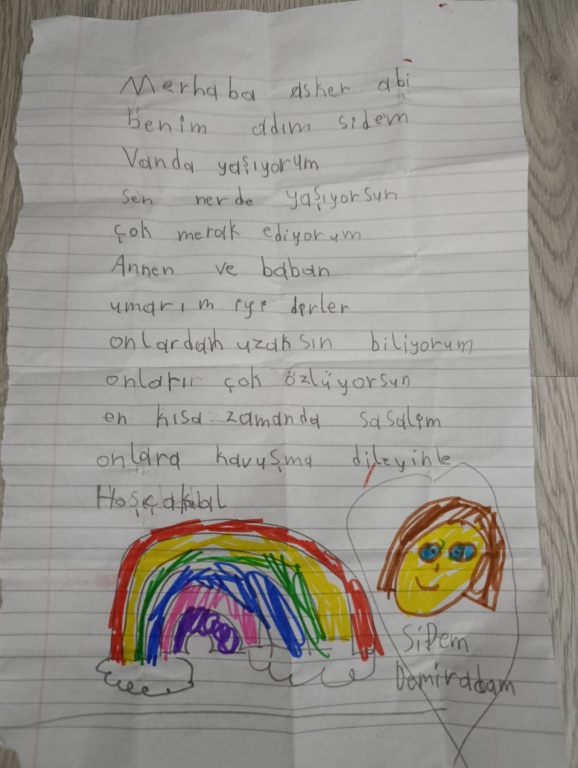 Merhaba asker abi
benim adım sidem
Vanda yaşıyorum
sen nerde yaşıyorsun
çok merak ediyorum
Annen ve baban
umarım iyi
onlardan uzaksın biliyorum
onları çok özlüyorsun
en kısa zamanda sasalim
onlara kavuşma dileyinle
Hoşçakal
Sidem
Demiradam